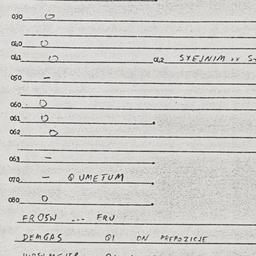 030 O
040 O
041 O 042 SYEJNIM
050 –
060 O
061 O
062 O
063 –
070 – QUMETUM
080 O
FROSW --- FRU
DEMGAS QI ON PREPOZICJE